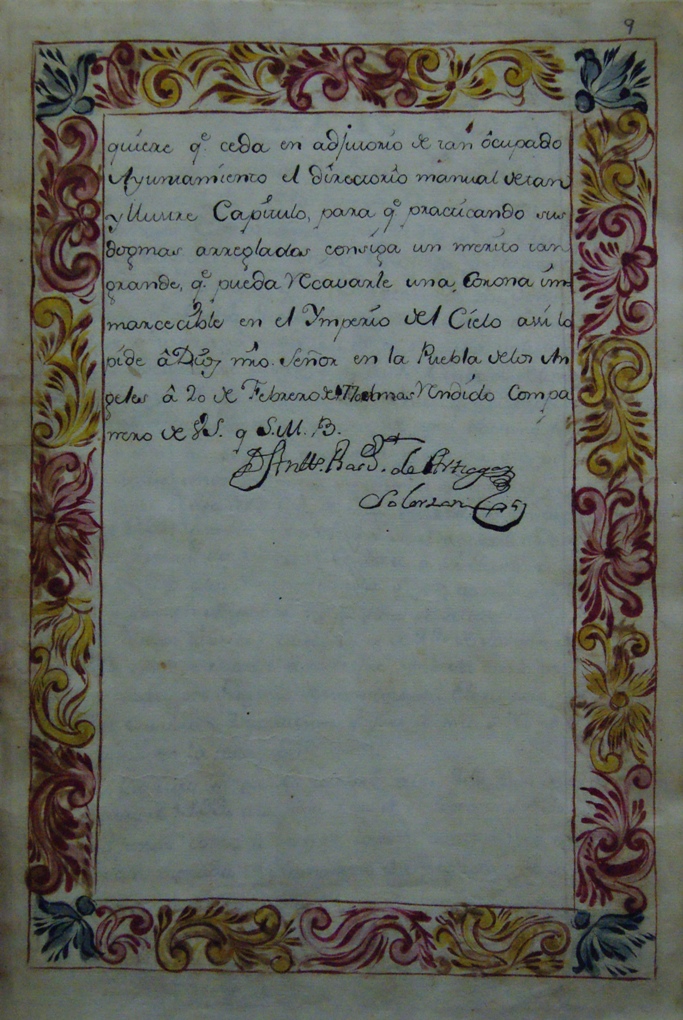 9
quiere qe. ceda en adjutorio de tan ôcupado
Ayuntamiento el directorio manual de tan
yllustre Capitulo, para qe. practicando sus
dogmas arregladas consiga un merito tan
grande, qe. pueda recavarle una Corona im-
marcecible en el Ymperio del Cielo assi lo
pide â Dios nro. Señor en la Puebla de los An
geles â 20 de Febrero de mas rendido Compa
nero de S. q S. M. B.
de Ortega
Solorzano